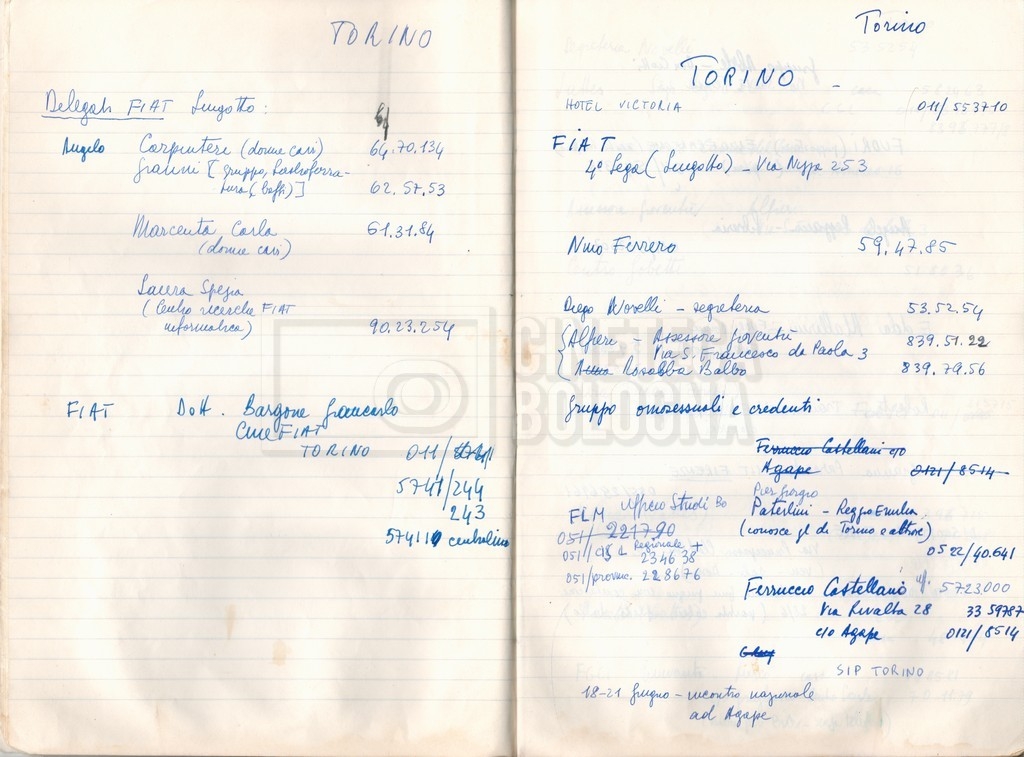 TORINO
Delegati FIAT Lingotto:
64
Angelo Carpinteri (donne casi) 64.70.134
Gianni [gruppo, lastroferra-
tura (Boffi)] 62.57.53
Marcenta Carla 61.31.84
(donne casi)
Laura Spezia
(Centro ricerche FIAT
informatica) 90.23.254
FIAT Dott. Bargone Giancarlo
Cine FIAT
TORINO 011/
5741/244
243
57411 centralino
Torino
TORINO -
HOTEL VICTORIA 011/553710
FIAT
4º Lega (Lingotto) - Via Nizza 253
Nino Ferrero 59.47.85
Diego Novelli - segreteria 53.52.54
Alfieri - Assessore gioventù 839.51.22
Via S. Francesco da Paola 3
Rosalba Balbo 839.79.56
Gruppo omosessuali e credenti
Ferruccio Castellani c/o
Agape 0121/8514
Pier Giorgio
Paterlini - Reggio Emilia
(conosce gl. di Torino e altrove)
0522/40.641
FLM Ufficio Studi Bo
051/221790
051/ CISL Regionale +
234638
051/provinc. 228676
Ferruccio Castellano uf. 5723.000
Via Rivalta 28 3359787
c/o Agape 0121/8514
SIP TORINO
18-21 Giugno - incontro nazionale
ad Agape
CINETECA
BOLOGNA